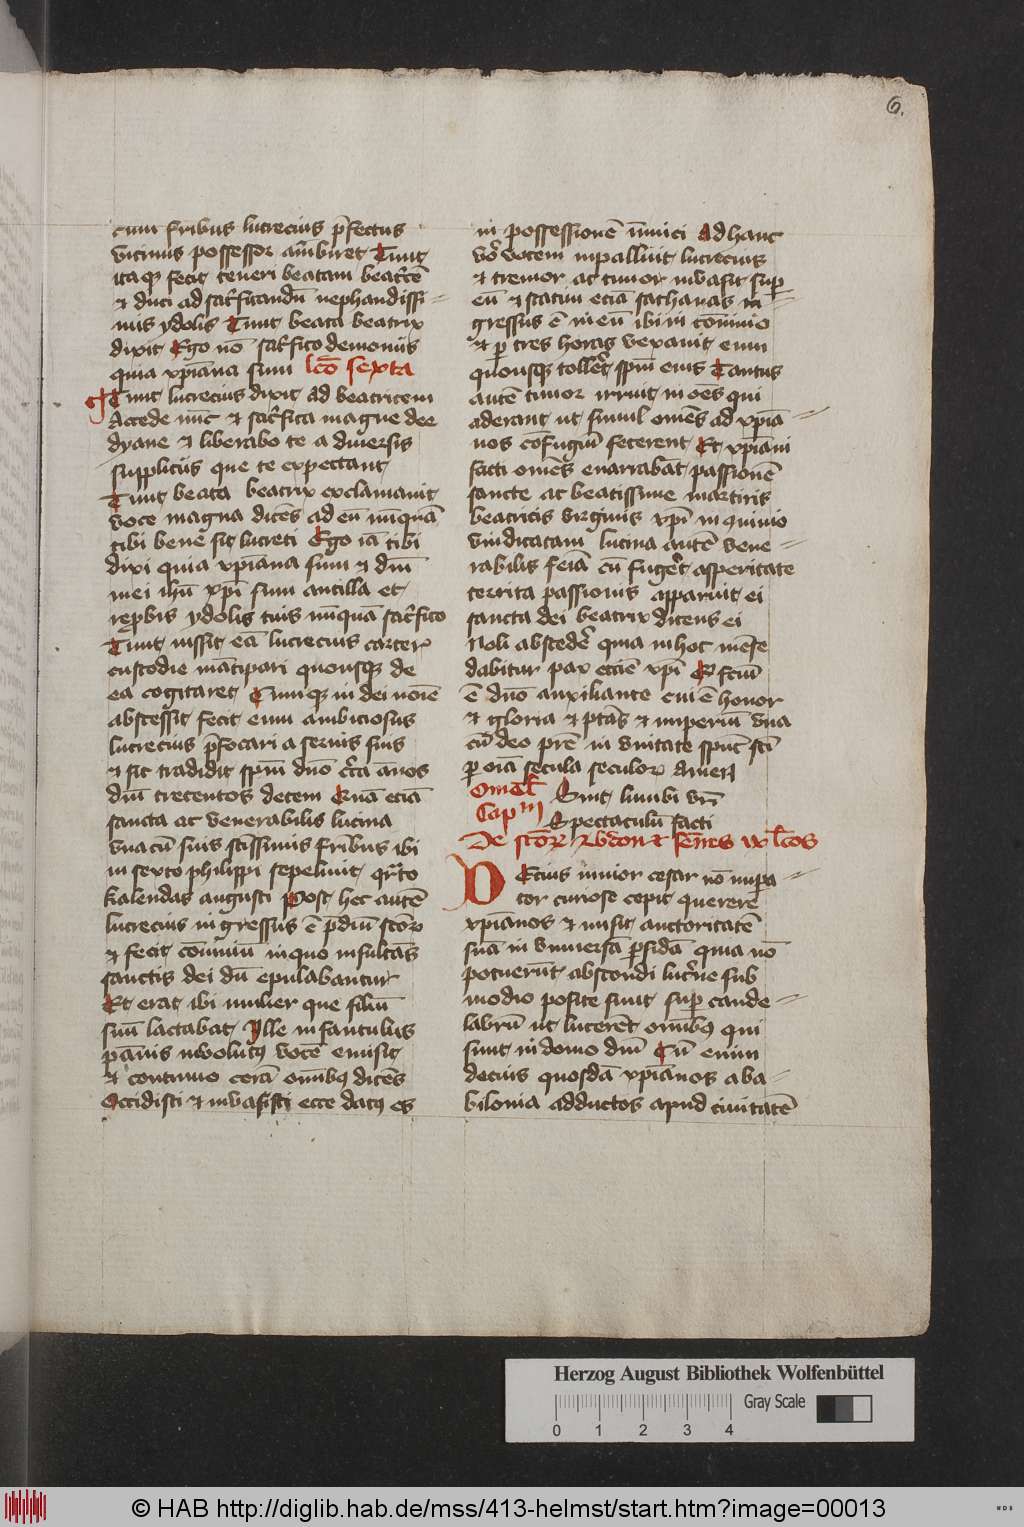 6.
cum fribus lucrecius p̄fectus
vicinus possessor am̄biret Tunc
itaqꝫ fecit teneri beatam beat͛cē
⁊ duci ad sac͛ficandū nephandissi=
mis ydolis Tunc beata beatrix
dixit Ego nō sac͛fico demoniis
quia xp̄iana sum lcō sexta
Tunc lucrecius dixit ad beatricem
Accede nūc ⁊ sac͛fica magne dee
dyane ⁊ liberabo te a diuersis
suppliciis que te expectant
Tunc beata beatrix exclamauit
voce magna dicēs ad eū nūquā
tibi bene sit lucreti Ego iā tibi
dixi quia xp̄iana sum ⁊ dn̄i
mei ihū xp̄i sum ancilla et
rep̱bis ydolis tuis nūquā sac͛fico
Tunc iussit eā lucrecius carceꝝ
custodie mācipari quousqꝫ de
ea cogitaret Cumqꝫ in dei noīe
abscessit fecit eum ambiciosus
lucrecius p̄focari a seruis suis
⁊ sic tradidit sp̄m dn̄o c͛ca ānos
dn̄i trecentos decem Quā eciā
sancta ac venerabilis lucina
vna cū suis sc̄issimis fribus ibi
in sexto philippi sepeliuit q͛rto
kalendas augusti Post hec autē
lucrecius ingressus ē p̄diū sc̄oꝝ
⁊ fecit cōuiuiū in quo insultās
sanctis dei dū epulabantur
Et erat ibi mulier que filiū
suū lactabat Ille infantulus
pānis inuolutꝯ vocē emisit
⁊ continuo corā om̄ibꝯ dicēs
Occidisti ⁊ inuasisti ecce datꝯ es
in possessionē in̄mici Ad hanc
vo͛ vocem inpalluit lucrecius
⁊ tremor ac timor inuasit suꝑ
eū ⁊ statim eciā sathanas in=
gressus ē in eū ibi in cōuiuio
⁊ ꝑ tres horas vexauit eum
quousqꝫ toller͛t sp̄m eius Tantus
autē timor irruit in oēs qui
aderant ut simul omēs ad xp̄ia=
nos cōfugiū fecerent Et xp̄iani
facti omēs enarrabāt passionē
sancte ac beatissime martiris
beatricis virginis xp̄i in quinio
vindicatam lucina autē vene=
rabilis feīa cū fuger͛t asperitate
territa passionis apparuit ei
sancta dei beatrix dicens ei
Noli absceder͛ quia in hoc mēse
dabitur pax eccīe xp̄i Et fcūm
ē dn̄o auxiliante cui ē honor
⁊ gloria ⁊ p̄tās ⁊ imperiū vna
cū deo pr̄e in vnitate sp̄us sc̄i
ꝑ oīa secula seculoꝝ Amen
Omel͛ Sint lumbi vr̄i
Cap᷒m Spectaculū facti
De sc̄oꝝ Abdon ⁊ Sen̄nes ix lc̄os
Decius iunior cesar nō impa=
tor curiose cepit querere
xp̄ianos ⁊ misit auctoritatē
suā in vniuersā ꝑsidā quia nō
potuerūt abscondi luc͛ne sub
modio posite sunt suꝑ cande=
labrū ut lucerēt om̄ibꝯ qui
sunt in domo dn̄i Cū enim
decius quosdā xp̄ianos a ba=
bilonia adductos apud ciuitatē
Herzog August Bibliothek Wolfenbüttel
Gray Scale
0 1 2 3 4
© HAB http://diglib.hab.de/mss/413-helmst/start.htm?image=00013